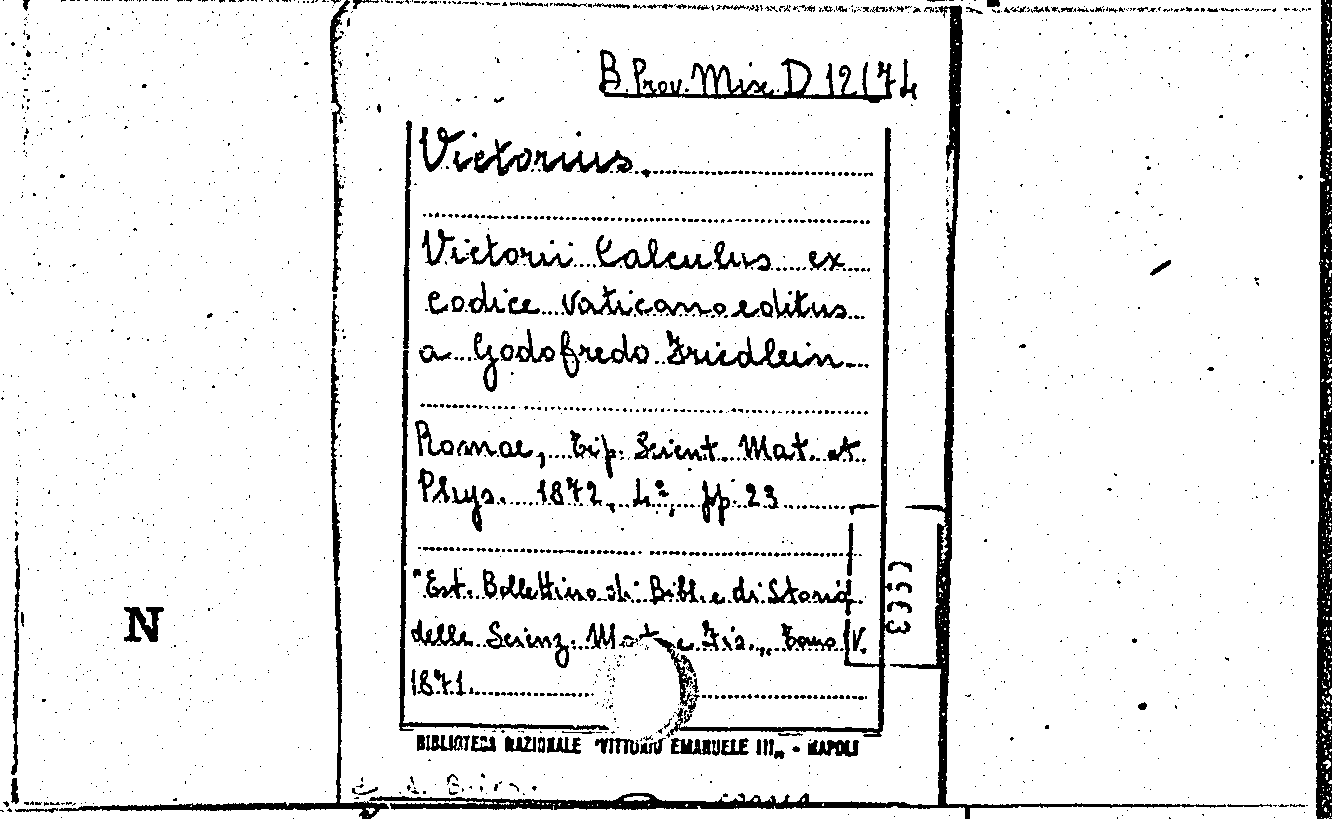 B. Prov. Misc. D 12(74
Victorius.
Victorii Calculus ex
codice vaticano editus
a Godofredo Friedlein
Romae, Tip. Scient. Mat. et
Phys. 1872, 4º, pp. 23
"Est. Bollettino di Bibl. e di Storia
delle Scienz. Mat. e Fis.„ Tomo IV.
1871.
N
BIBLIOTECA NAZIONALE "VITTORIO EMANUELE III„ - NAPOLI